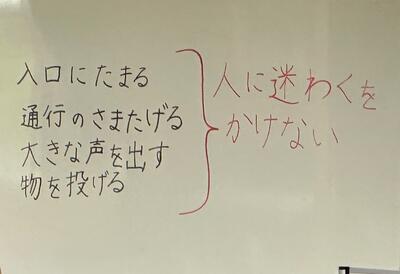 入口にたまる
通行のさまたげる
大きな声を出す
物を投げる
人に迷わくを
かけない